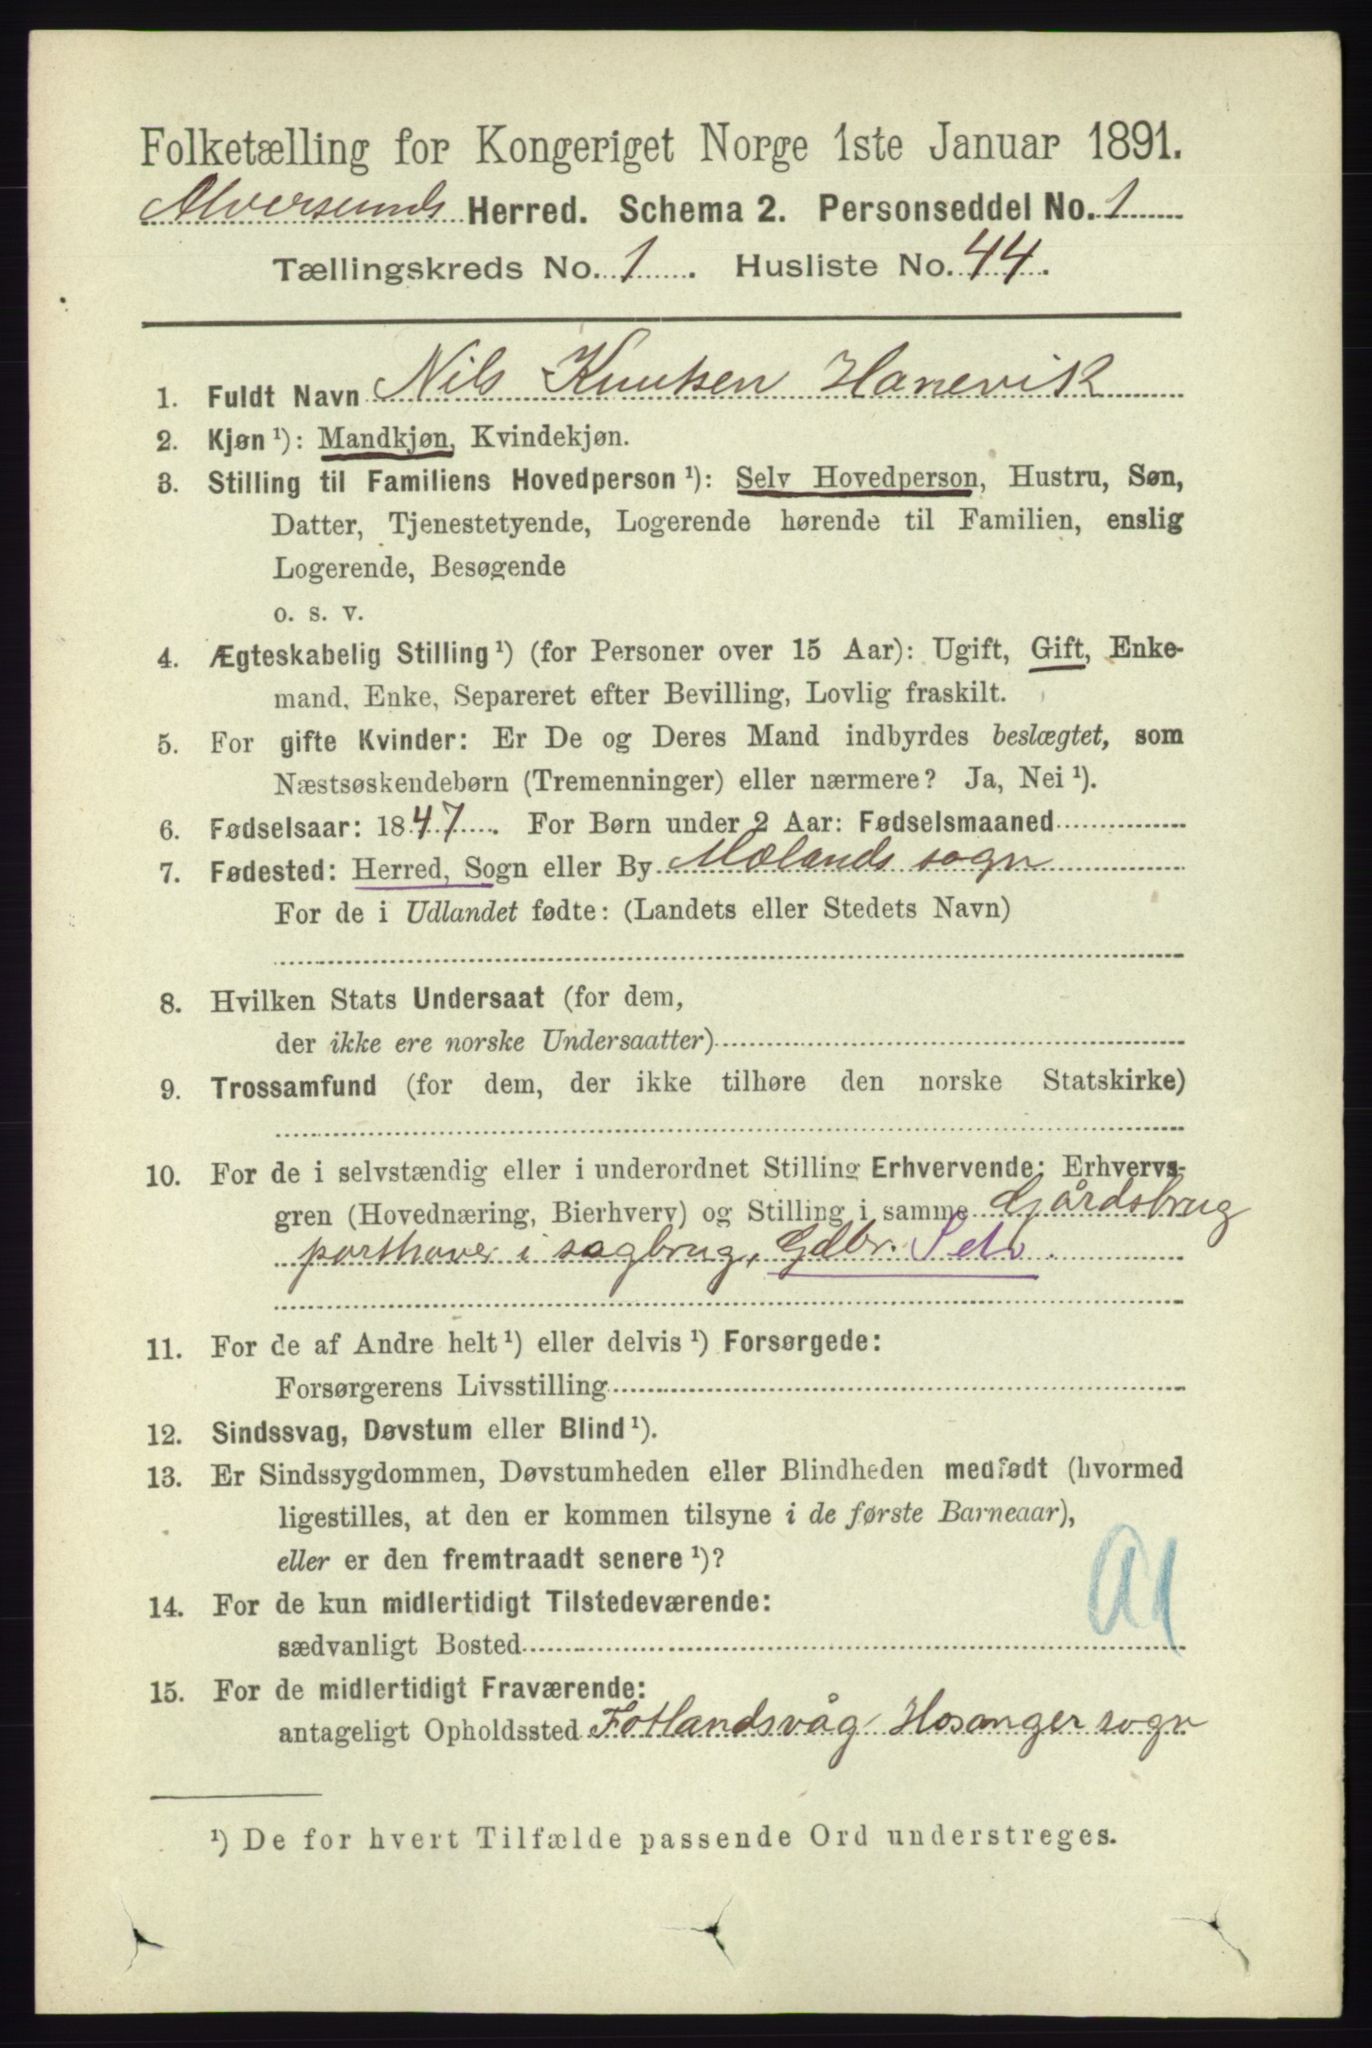 Folketælling for Kongeriget Norge 1ste Januar 1891.
Alversunds Herred. Schema 2. Personseddel No. 1
Tællingskreds No. 1. Husliste No. 44.
1. Fuldt Navn Nils Knutsen Hanevik
2. Kjøn ¹): Mandkjøn, Kvindekjøn.
3. Stilling til Familiens Hovedperson ¹): Selv Hovedperson, Hustru, Søn,
Datter, Tjenestetyende, Logerende hørende til Familien, enslig
Logerende, Besøgende
o. s. v.
4. Ægteskabelig Stilling ¹) (for Personer over 15 Aar): Ugift, Gift, Enke-
mand, Enke, Separeret efter Bevilling, Lovlig fraskilt.
5. For gifte Kvinder: Er De og Deres Mand indbyrdes beslægtet, som
Næstsøskendebørn (Tremenninger) eller nærmere? Ja, Nei ¹).
6. Fødselsaar: 1847. For Børn under 2 Aar: Fødselsmaaned
7. Fødested: Herred, Sogn eller By Mælands sogn
For de i Udlandet fødte: (Landets eller Stedets Navn)
8. Hvilken Stats Undersaat (for dem,
der ikke ere norske Undersaatter)
9. Trossamfund (for dem, der ikke tilhøre den norske Statskirke)
10. For de i selvstændig eller i underordnet Stilling Erhvervende: Erhvervs-
gren (Hovednæring, Bierhverv) og Stilling i samme Gjårdsbrug
parthaver i sagbrug, Gdbr. Selv.
11. For de af Andre helt ¹) eller delvis ¹) Forsørgede:
Forsørgerens Livsstilling
12. Sindssvag, Døvstum eller Blind ¹).
13. Er Sindssygdommen, Døvstumheden eller Blindheden medfødt (hvormed
ligestilles, at den er kommen tilsyne i de første Barneaar),
eller er den fremtraadt senere ¹)?
14. For de kun midlertidigt Tilstedeværende:
sædvanligt Bosted
A1
15. For de midlertidigt Fraværende:
antageligt Opholdssted Fotlandsvåg Hosanger sogn
¹) De for hvert Tilfælde passende Ord understreges.